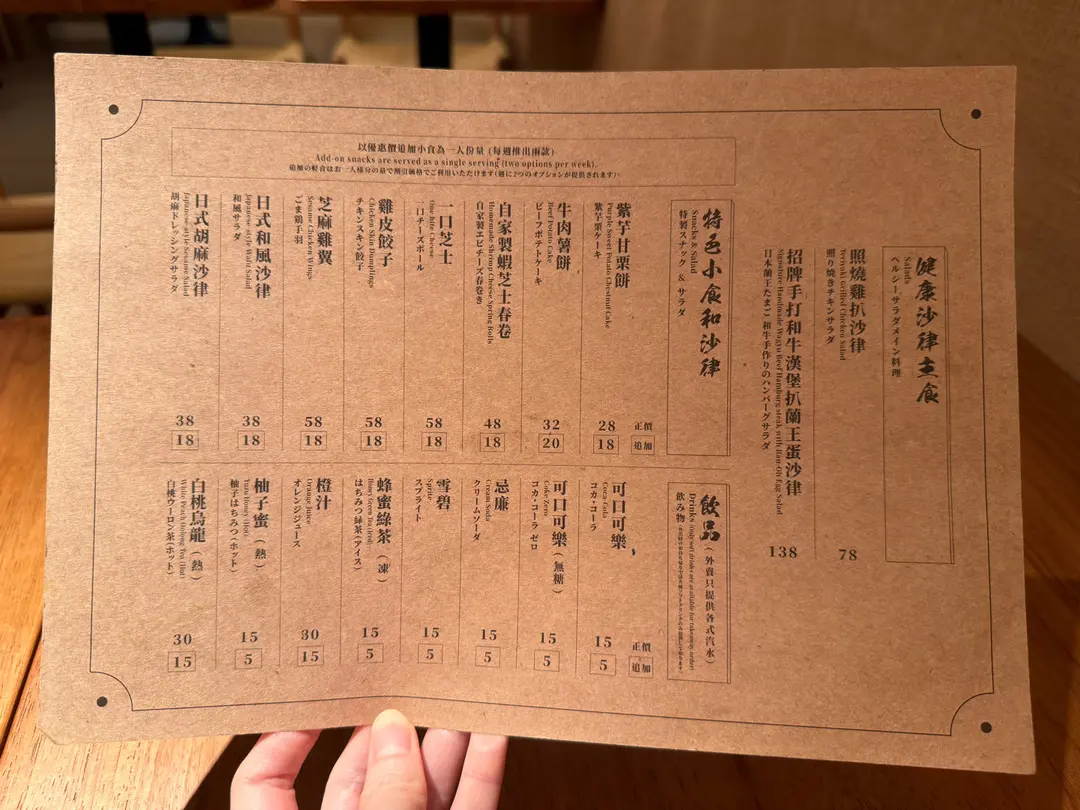 健康沙律主食
Salads
ヘルシーサラダメイン料理
照燒雞扒沙律
Teriyaki Grilled Chicken Salad
照り焼きチキンサラダ
78
招牌手打和牛漢堡扒蘭王蛋沙律
Signature Handmade Wagyu Beef Hamburg steak with Ran-Oh Egg Salad
日本蘭王たまご 和牛手作りのハンバーグサラダ
138
以優惠價追加小食為一人份量 (每週推出兩款)
Add-on snacks are served as a single serving (two options per week).
追加の軽食はお一人様分の量で割引価格でご利用いただけます(週に2つのオプションが提供されます)
特色小食和沙律
Snacks & Salad
特製スナック & サラダ
正價
追加
紫芋甘栗餅
Purple Sweet Potato Chestnut Cake
紫芋栗ケーキ
28
18
牛肉薯餅
Beef Potato Cake
ビーフポテトケーキ
32
20
自家製蝦芝士春卷
Homemade Shrimp Cheese Spring Rolls
自家製エビチーズ春巻き
48
18
一口芝士
One bite Cheese
一口チーズボール
58
18
雞皮餃子
Chicken Skin Dumplings
チキンスキン餃子
58
18
芝麻雞翼
Sesame Chicken Wings
ごま鶏手羽
58
18
日式和風沙律
Japanese-style Wafu Salad
和風サラダ
38
18
日式胡麻沙律
Japanese-style Sesame Salad
胡麻ドレッシングサラダ
38
18
飲品 (外賣只提供各式汽水)
Drinks (Only soft drinks are available for takeaway orders)
飲み物
正價
追加
可口可樂,
Coca Cola
コカ・コーラ
15
5
可口可樂 (無糖)
Coke Zero
コカ・コーラ ゼロ
15
5
忌廉
Cream Soda
クリームソーダ
15
5
雪碧
Sprite
スプライト
15
5
蜂蜜綠茶 (凍)
Honey Green Tea (Iced)
はちみつ緑茶(アイス)
15
5
橙汁
Orange Juice
オレンジジュース
30
15
柚子蜜 (熱)
Yuzu Honey (Hot)
柚子はちみつ(ホット)
15
5
白桃烏龍 (熱)
White Peach Oolong Tea (Hot)
白桃ウーロン茶(ホット)
30
15